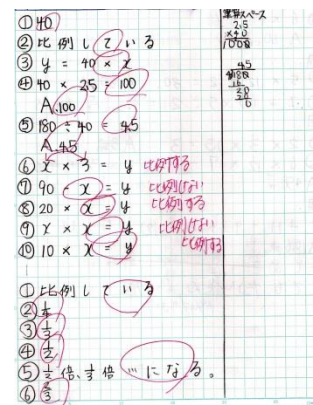 ①40
②比例している
③y = 40 × x
④40 × 2.5 = 100
A.100
⑤180 ÷ 40 = 4.5
A.4.5
⑥x × 3 = y 比例する
⑦90 - x = y 比例しない
⑧20 × x = y 比例する
⑨x × x = y 比例しない
⑩10 × x = y 比例する
①比例している
③1/3
④1/2
⑤1/2倍、1/3倍…になる。
⑥2/3
計算スペース
2.5
×40
1000
4.5
180
16
20
20
0